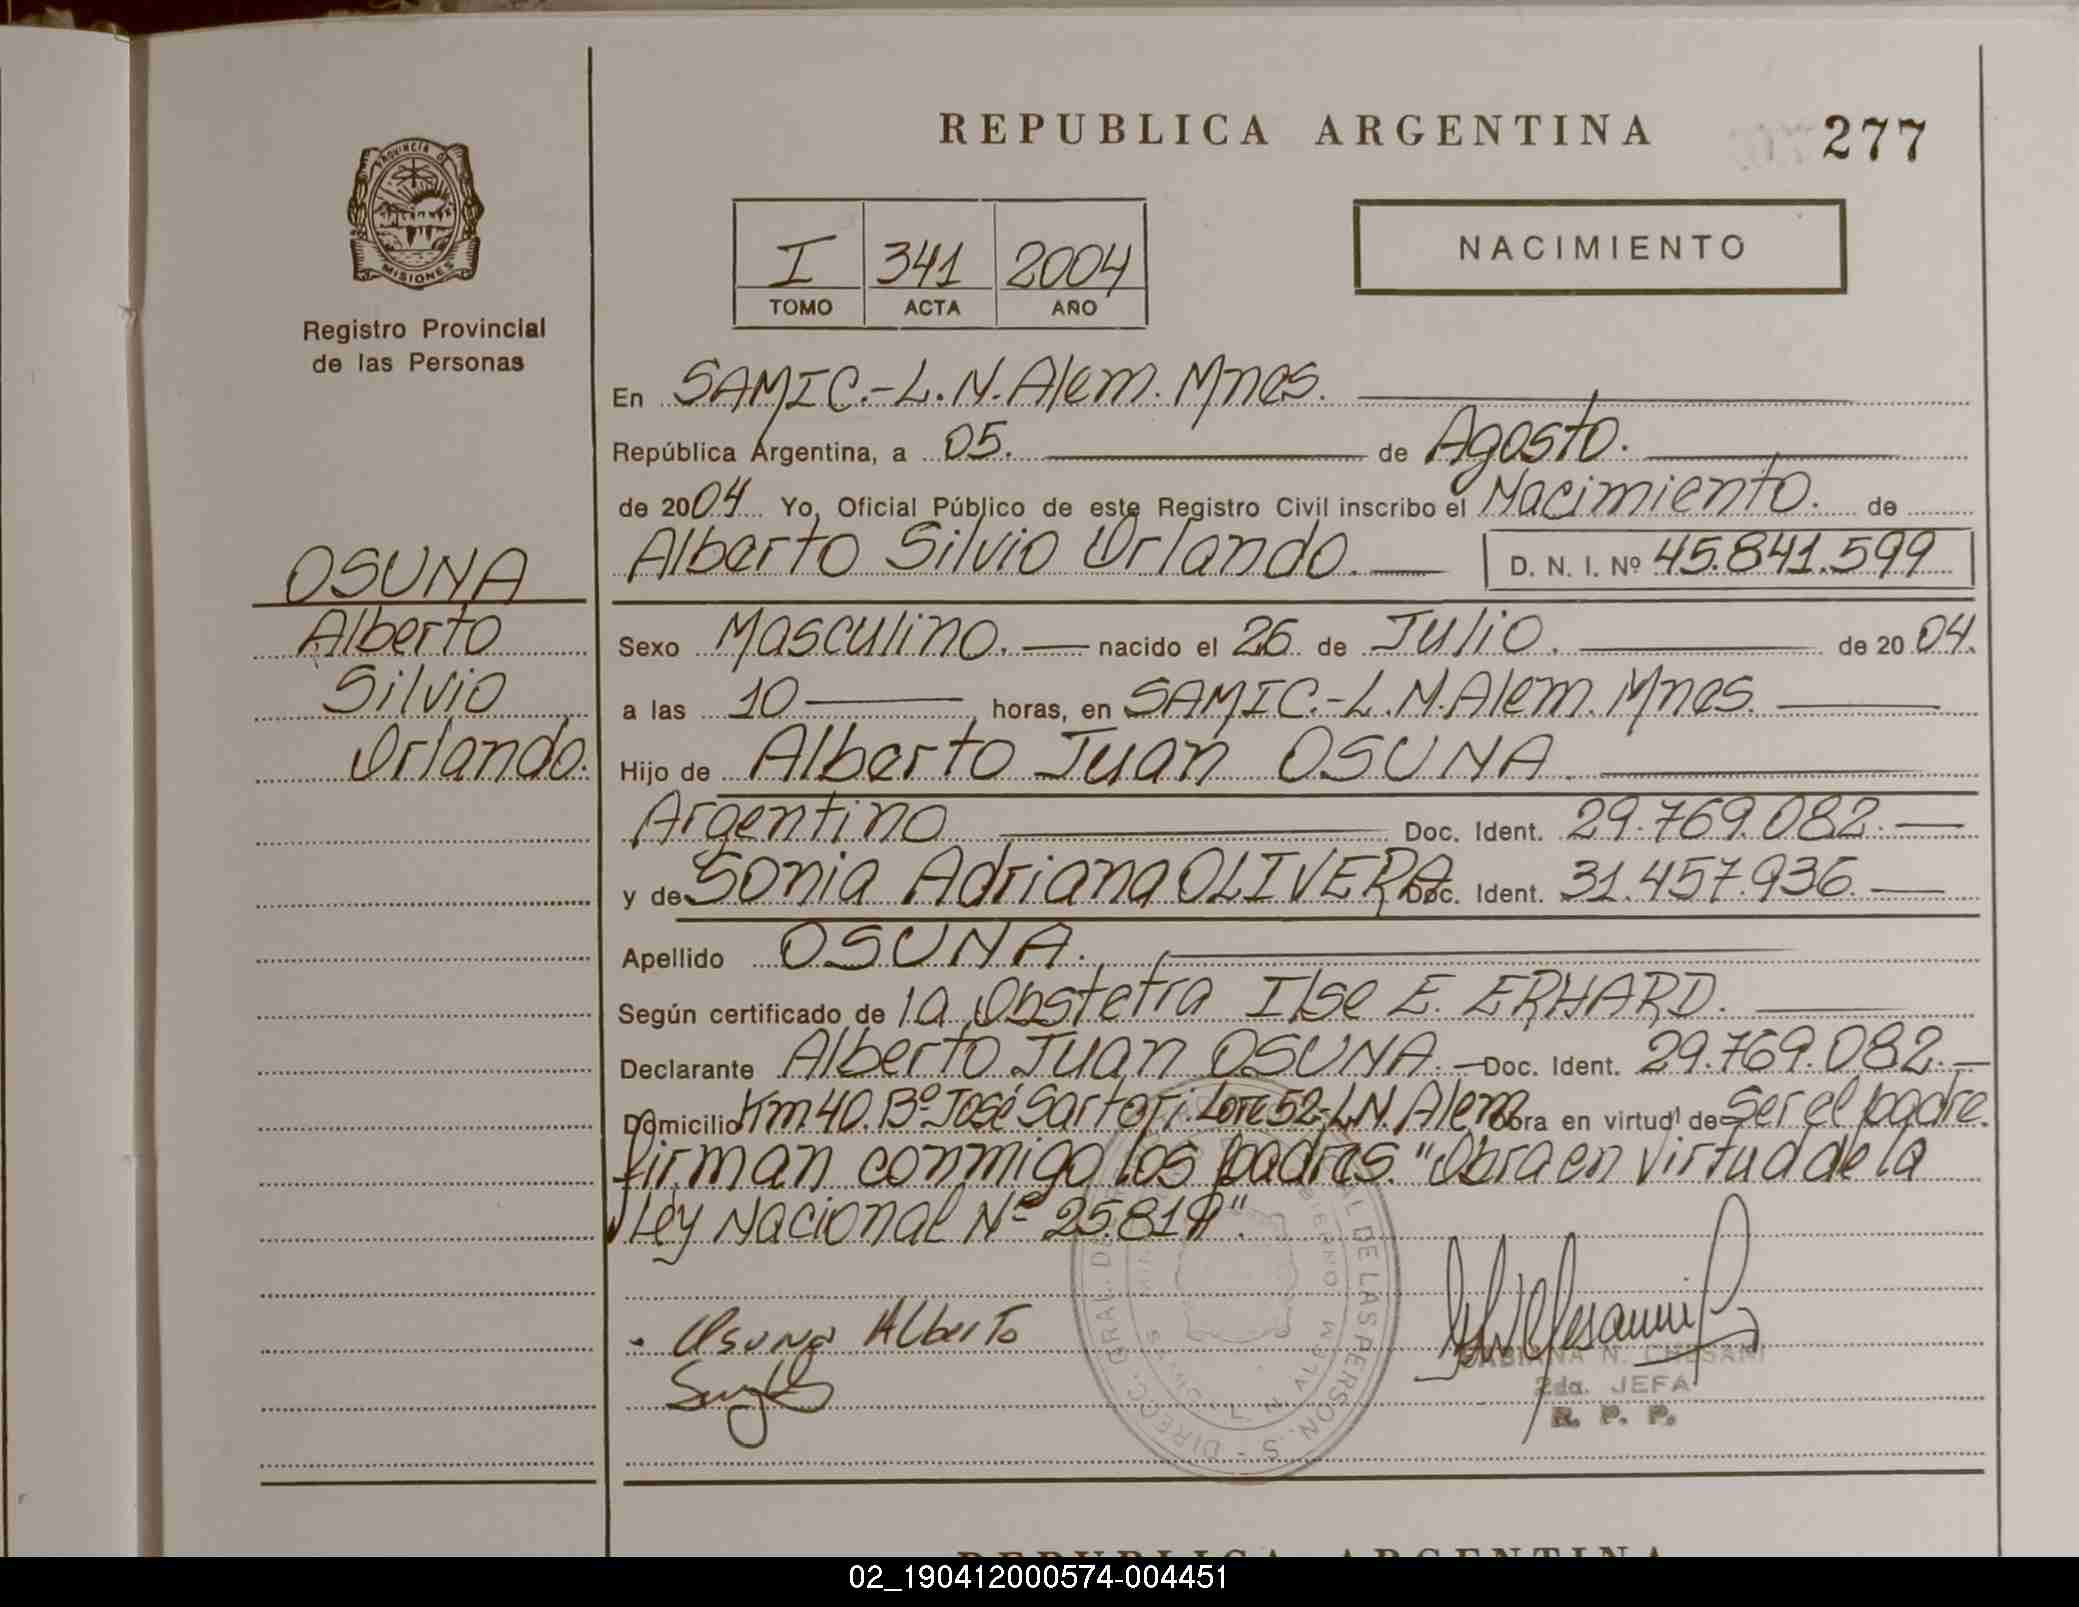 REPUBLICA ARGENTINA 277
PROVINCIA DE
MISIONES
Registro Provincial
de las Personas
I 341 2004
TOMO ACTA AÑO
NACIMIENTO
En SAMIC.-L.N.Alem.Mnes.
República Argentina, a 05. de Agosto.
de 2004 Yo, Oficial Público de este Registro Civil inscribo el Nacimiento. de
Alberto Silvio Orlando. D. N. I. Nº 45.841.599
OSUNA
Alberto
Silvio
Orlando.
Sexo Masculino. nacido el 26 de Julio. de 2004.
a las 10 horas, en SAMIC.-L.N.Alem.Mnes.
Hijo de Alberto Juan OSUNA
Argentino Doc. Ident. 29.769.082.
y de Sonia Adriana OLIVERA Doc. Ident. 31.457.936.
Apellido OSUNA.
Según certificado de la Obstetra Ilse E. ERHARD.
Declarante Alberto Juan OSUNA. Doc. Ident. 29.769.082.
Domicilio Km 40. Bº José Sartori. Lote 52-L.N.Alem obra en virtud de Ser el padre.
firman conmigo los padres. "Obra en virtud de la
Ley Nacional Nº 25.819".
Osuna Alberto
FABIANA N. CHESANI
2da. JEFA
R. P. P.
REPUBLICA ARGENTINA
02_190412000574-004451